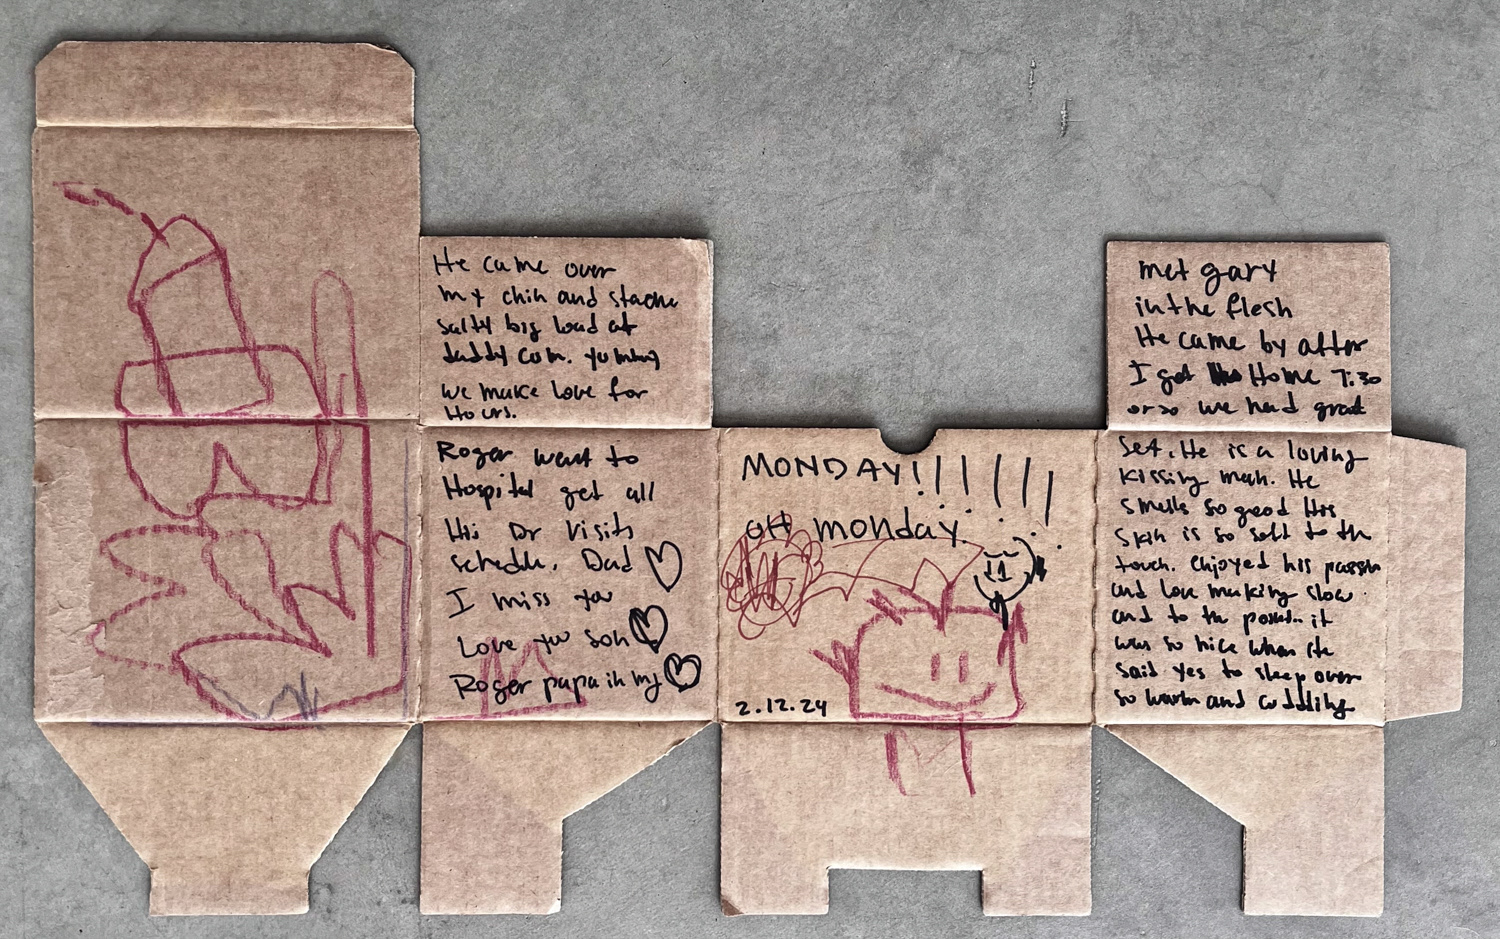 He came over
my chin and stache
salty big load of
daddy cum. yummy
we make love for
Hours.
Roger went to
Hospital get all
His Dr visits
schedule. Dad
I miss you
Love you son
Roger papa in my
MONDAY!!!!!!!
OH monday
2.12.24
met gary
in the flesh
He came by after
I get Home 7:30
or so we had great
Sex. He is a loving
kissing man. He
smells so good His
skin is so soft to the
touch. enjoyed his passion
and love making slow
and to the point.. it
was so nice when He
said yes to sleep over
so warm and cuddling